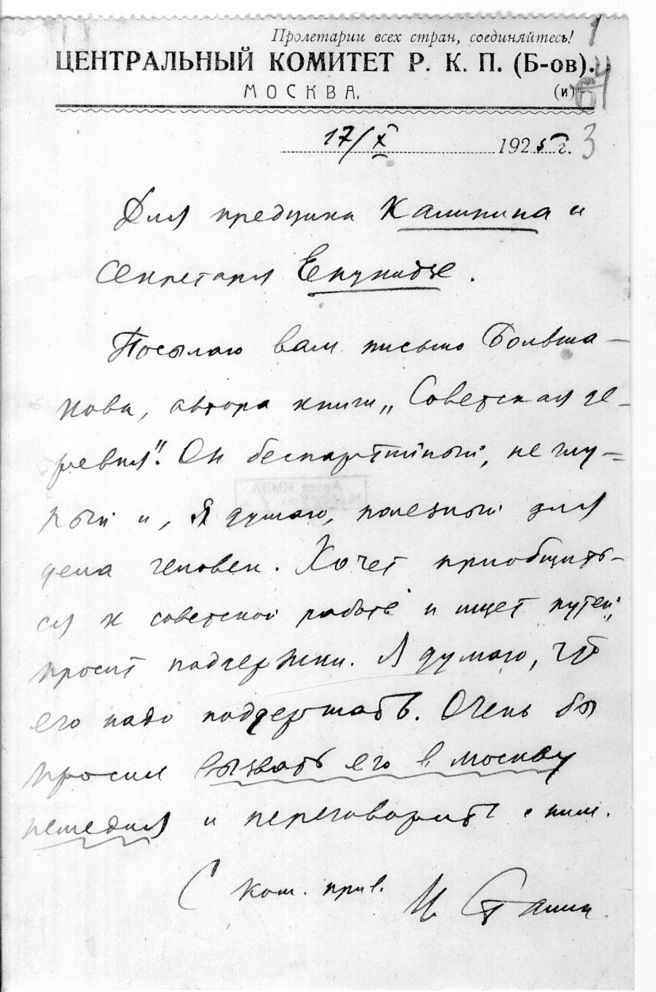 Пролетарии всех стран, соединяйтесь!
ЦЕНТРАЛЬНЫЙ КОМИТЕТ Р. К. П. (Б-ов).
МОСКВА.
(и)
17/X 1925 г. 3
Для предцика Калинина и
секретаря Енукидзе.
Посылаю вам письмо Больша-
кова, автора книги „Советская де-
ревня". Он беспартийный, не глу-
пый и, я думаю, полезный для
дела человек. Хочет приобщить-
ся к советской работе и ищет путей,
просит поддержки. Я думаю, что
его надо поддержать. Очень бы
просил вызвать его в Москву
немедля и переговорить с ним.
С ком. прив. И Сталин.